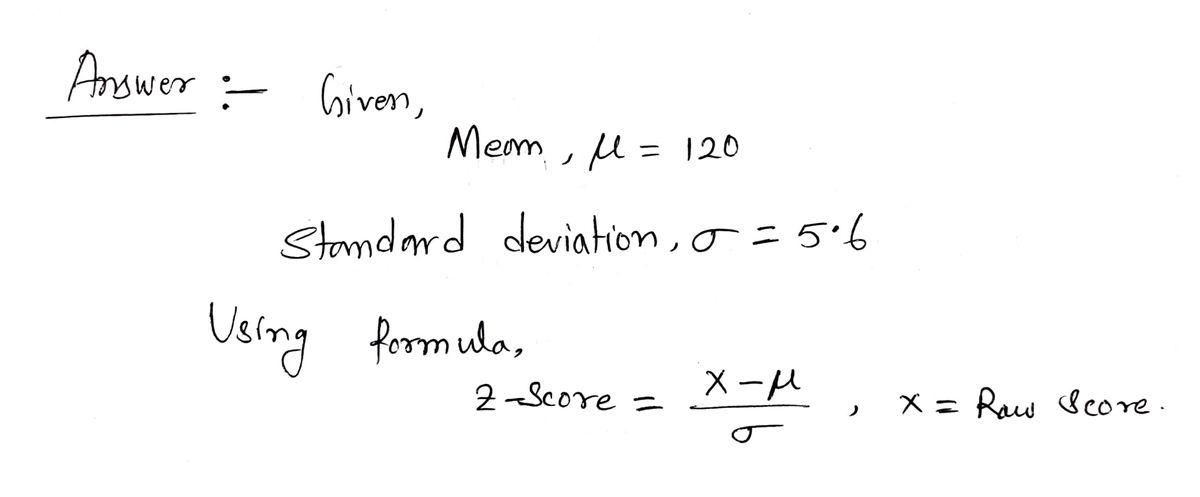 Answer :- Given,
Mean, μ = 120
Standard deviation, σ = 5.6
Using formula,
Z-Score = (X-μ)/σ, X = Raw Score.